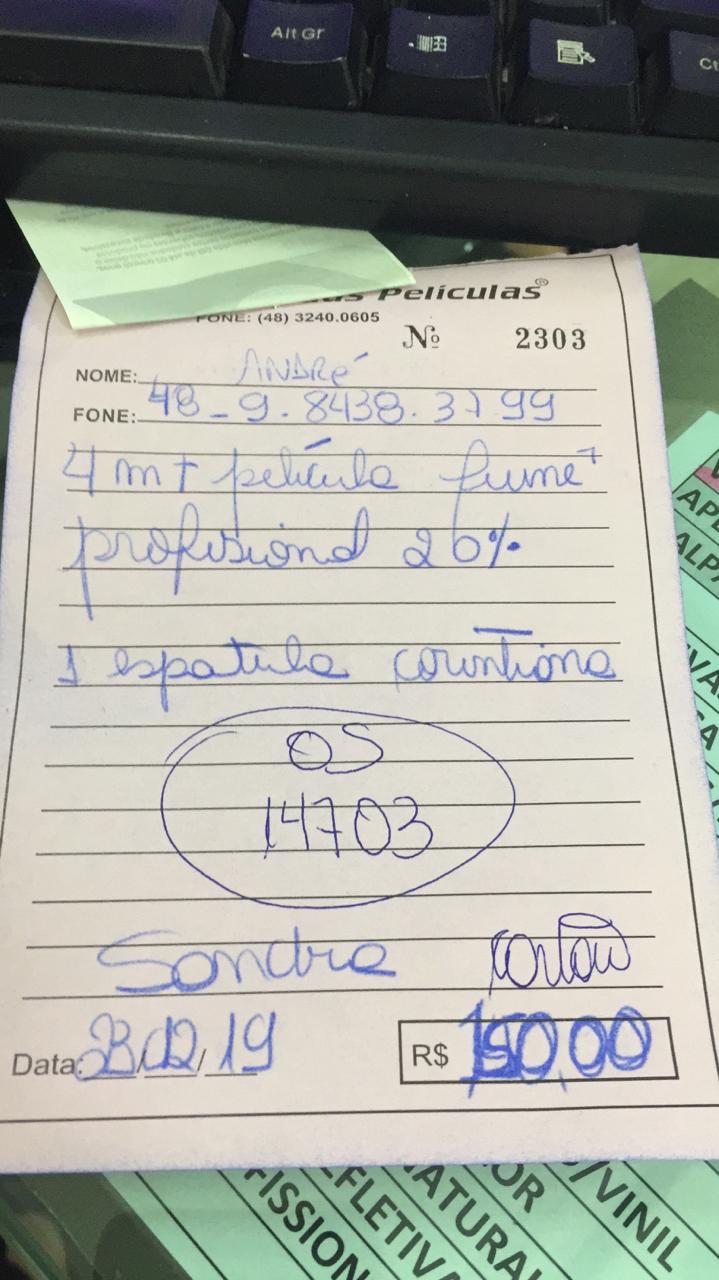 Alt Gr
Películas®
FONE: (48) 3240.0605
Nº 2303
NOME: ANDRé
FONE: 48-9.8438.3799
4 mt película fumê
profisional 20%
1 espatula corintiana
OS
14703
Sandra cartão
Data: 23/12/19
R$ 150,00
APL
ALPA
SA
OR
/VINIL
NATURAL
EFLETIVA
FISSION